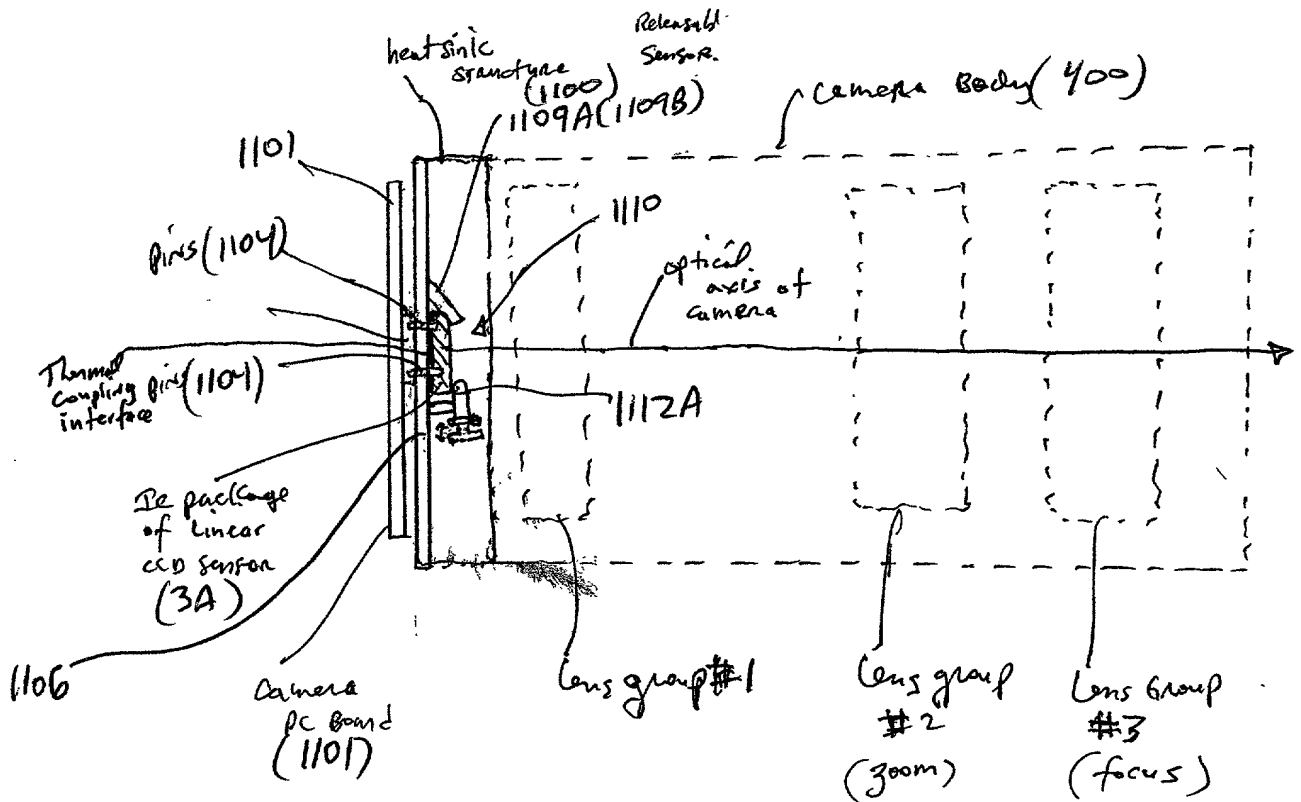 Releasabl.
Sensor.
heatsink
structure
(1100)
1109A(1109B)
camera Body(400)
1101
pins(1104)
1110
optical
axis of
camera
Thermal
coupling
interface
pins(1104)
1112A
Ic package
of Linear
CCD sensor
(3A)
1106
camera
PC Board
(1101)
Lens group #1
Lens group
#2
(zoom)
Lens Group
#3
(focus)